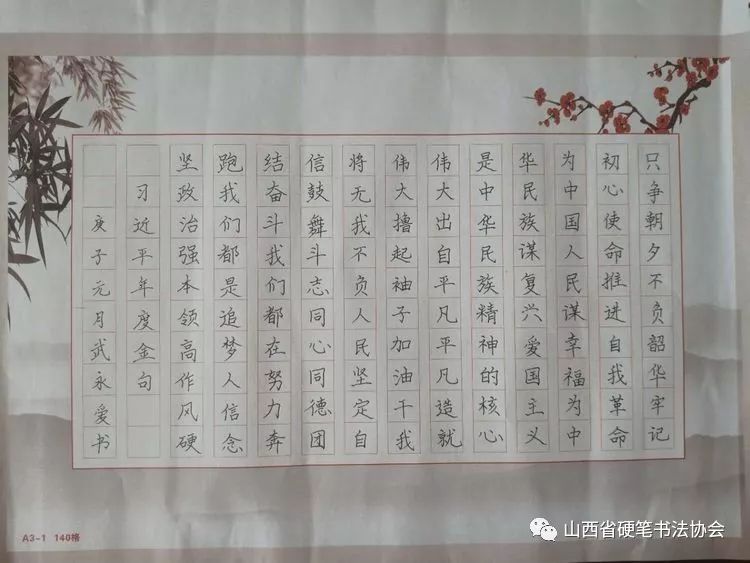 只争朝夕不负韶华牢记
初心使命推进自我革命
为中国人民谋幸福为中
华民族谋复兴爱国主义
是中华民族精神的核心
伟大出自平凡平凡造就
伟大撸起袖子加油干我
将无我不负人民坚定自
信鼓舞斗志同心同德团
结奋斗我们都在努力奔
跑我们都是追梦人信念
坚政治强本领高作风硬
习近平年度金句
庚子元月武永爱书
A3-1 140格
山西省硬笔书法协会